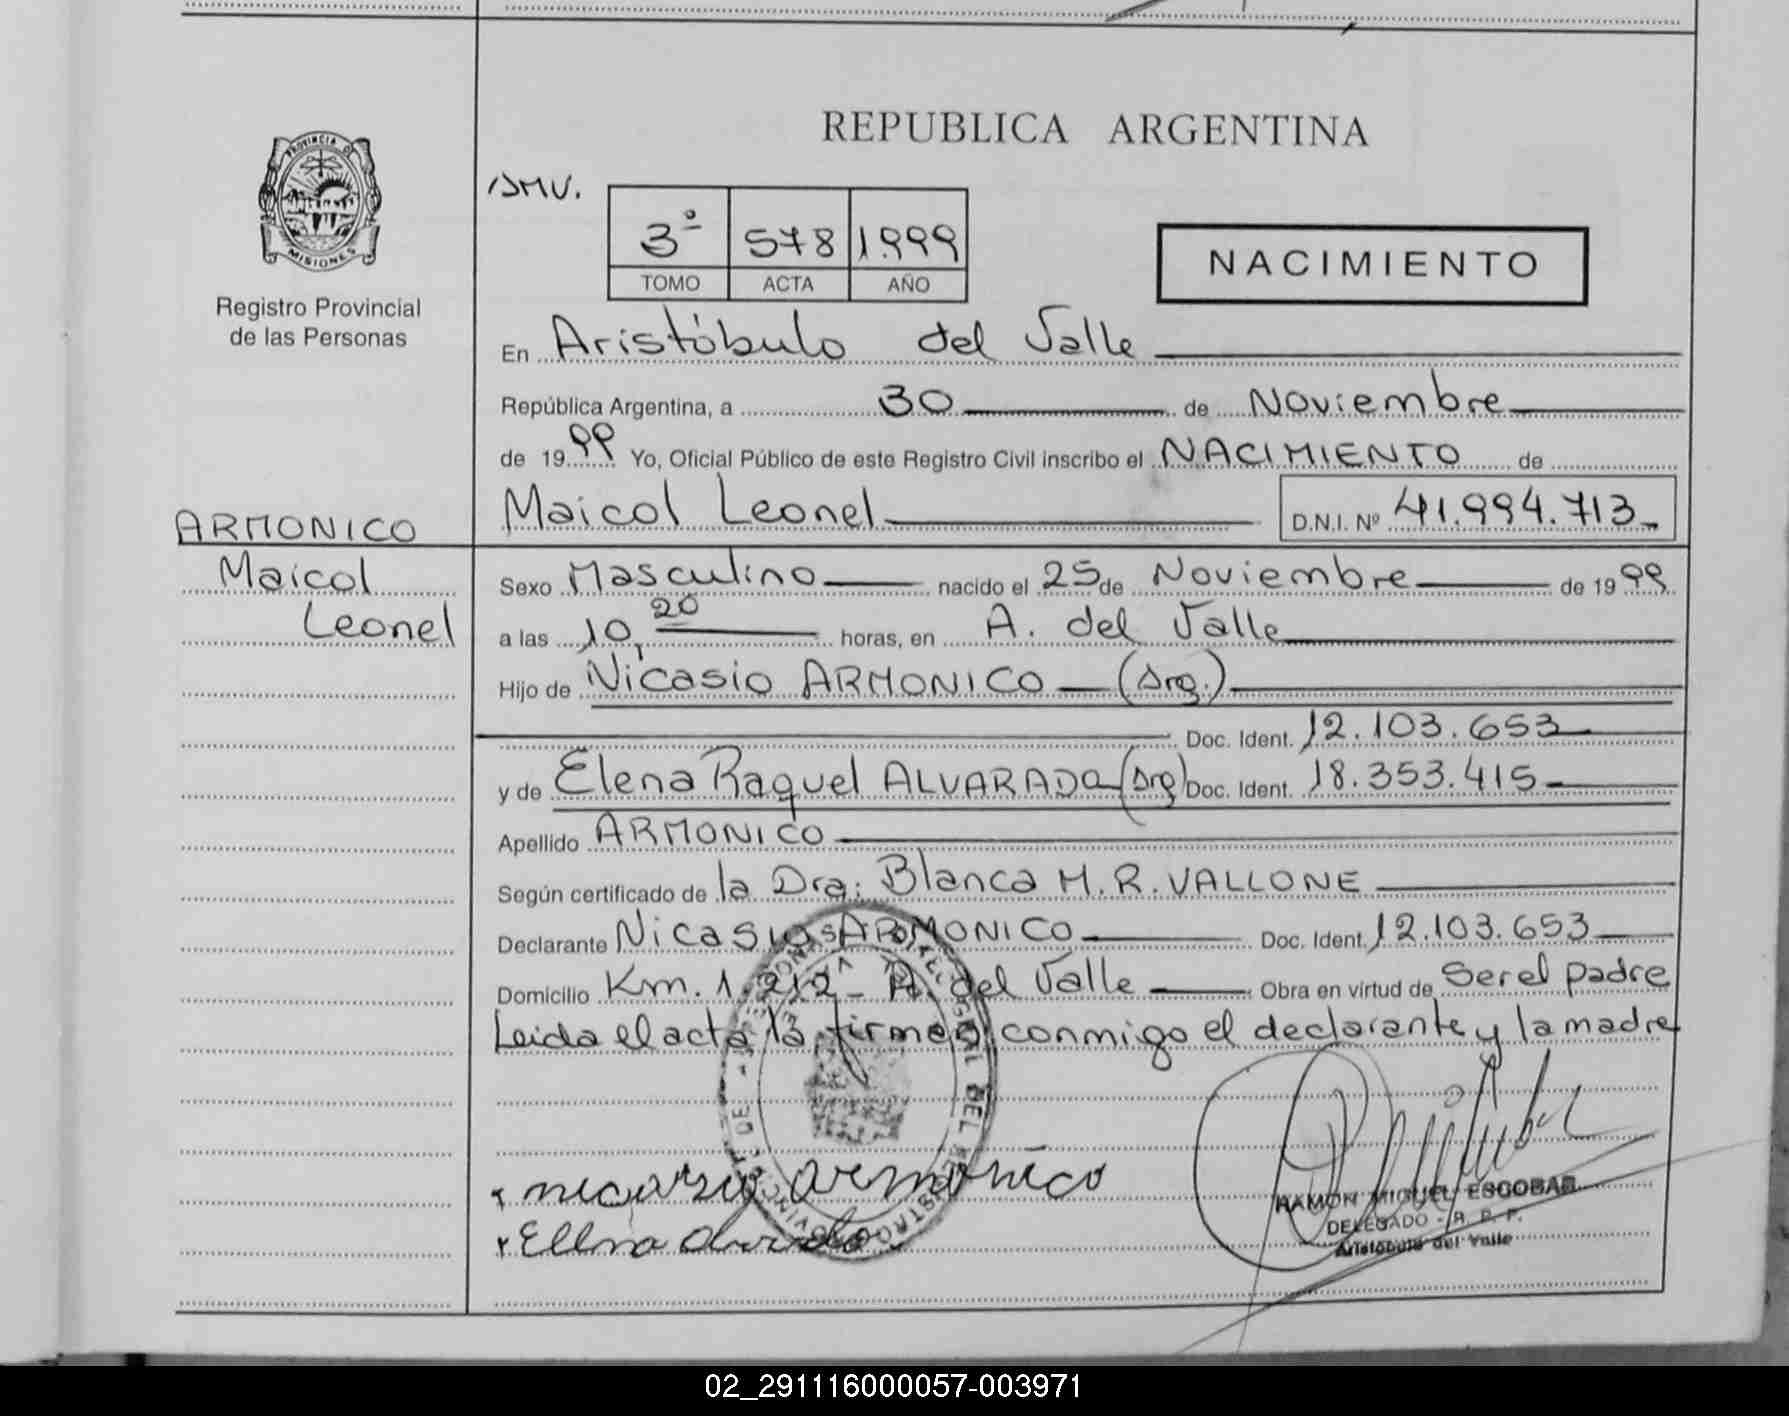 PROVINCIA DE
MISIONES
Registro Provincial
de las Personas
ARMONICO
Maicol
Leonel
REPUBLICA ARGENTINA
/SMV.
3º 578 1.999
TOMO ACTA AÑO
NACIMIENTO
En Aristóbulo del Valle
República Argentina, a 30 de Noviembre
de 1999 Yo, Oficial Público de este Registro Civil inscribo el NACIMIENTO de
Maicol Leonel D.N.I. Nº 41.994.713
Sexo Masculino nacido el 25 de Noviembre de 1999
a las 10,20 horas, en A. del Valle
Hijo de Nicasio ARMONICO (Arg.)
Doc. Ident. 12.103.653
y de Elena Raquel ALVARADO (Arg) Doc. Ident. 18.353.415
Apellido ARMONICO
Según certificado de la Dra: Blanca M.R. VALLONE
Declarante Nicasio ARMONICO Doc. Ident. 12.103.653
Domicilio Km. 1.212 - A. del Valle Obra en virtud de Ser el padre
Leida el acta la firman conmigo el declarante y la madre
RAMON MIGUEL ESCOBAR
DELEGADO - R. P. P.
Aristóbulo del Valle
02_291116000057-003971